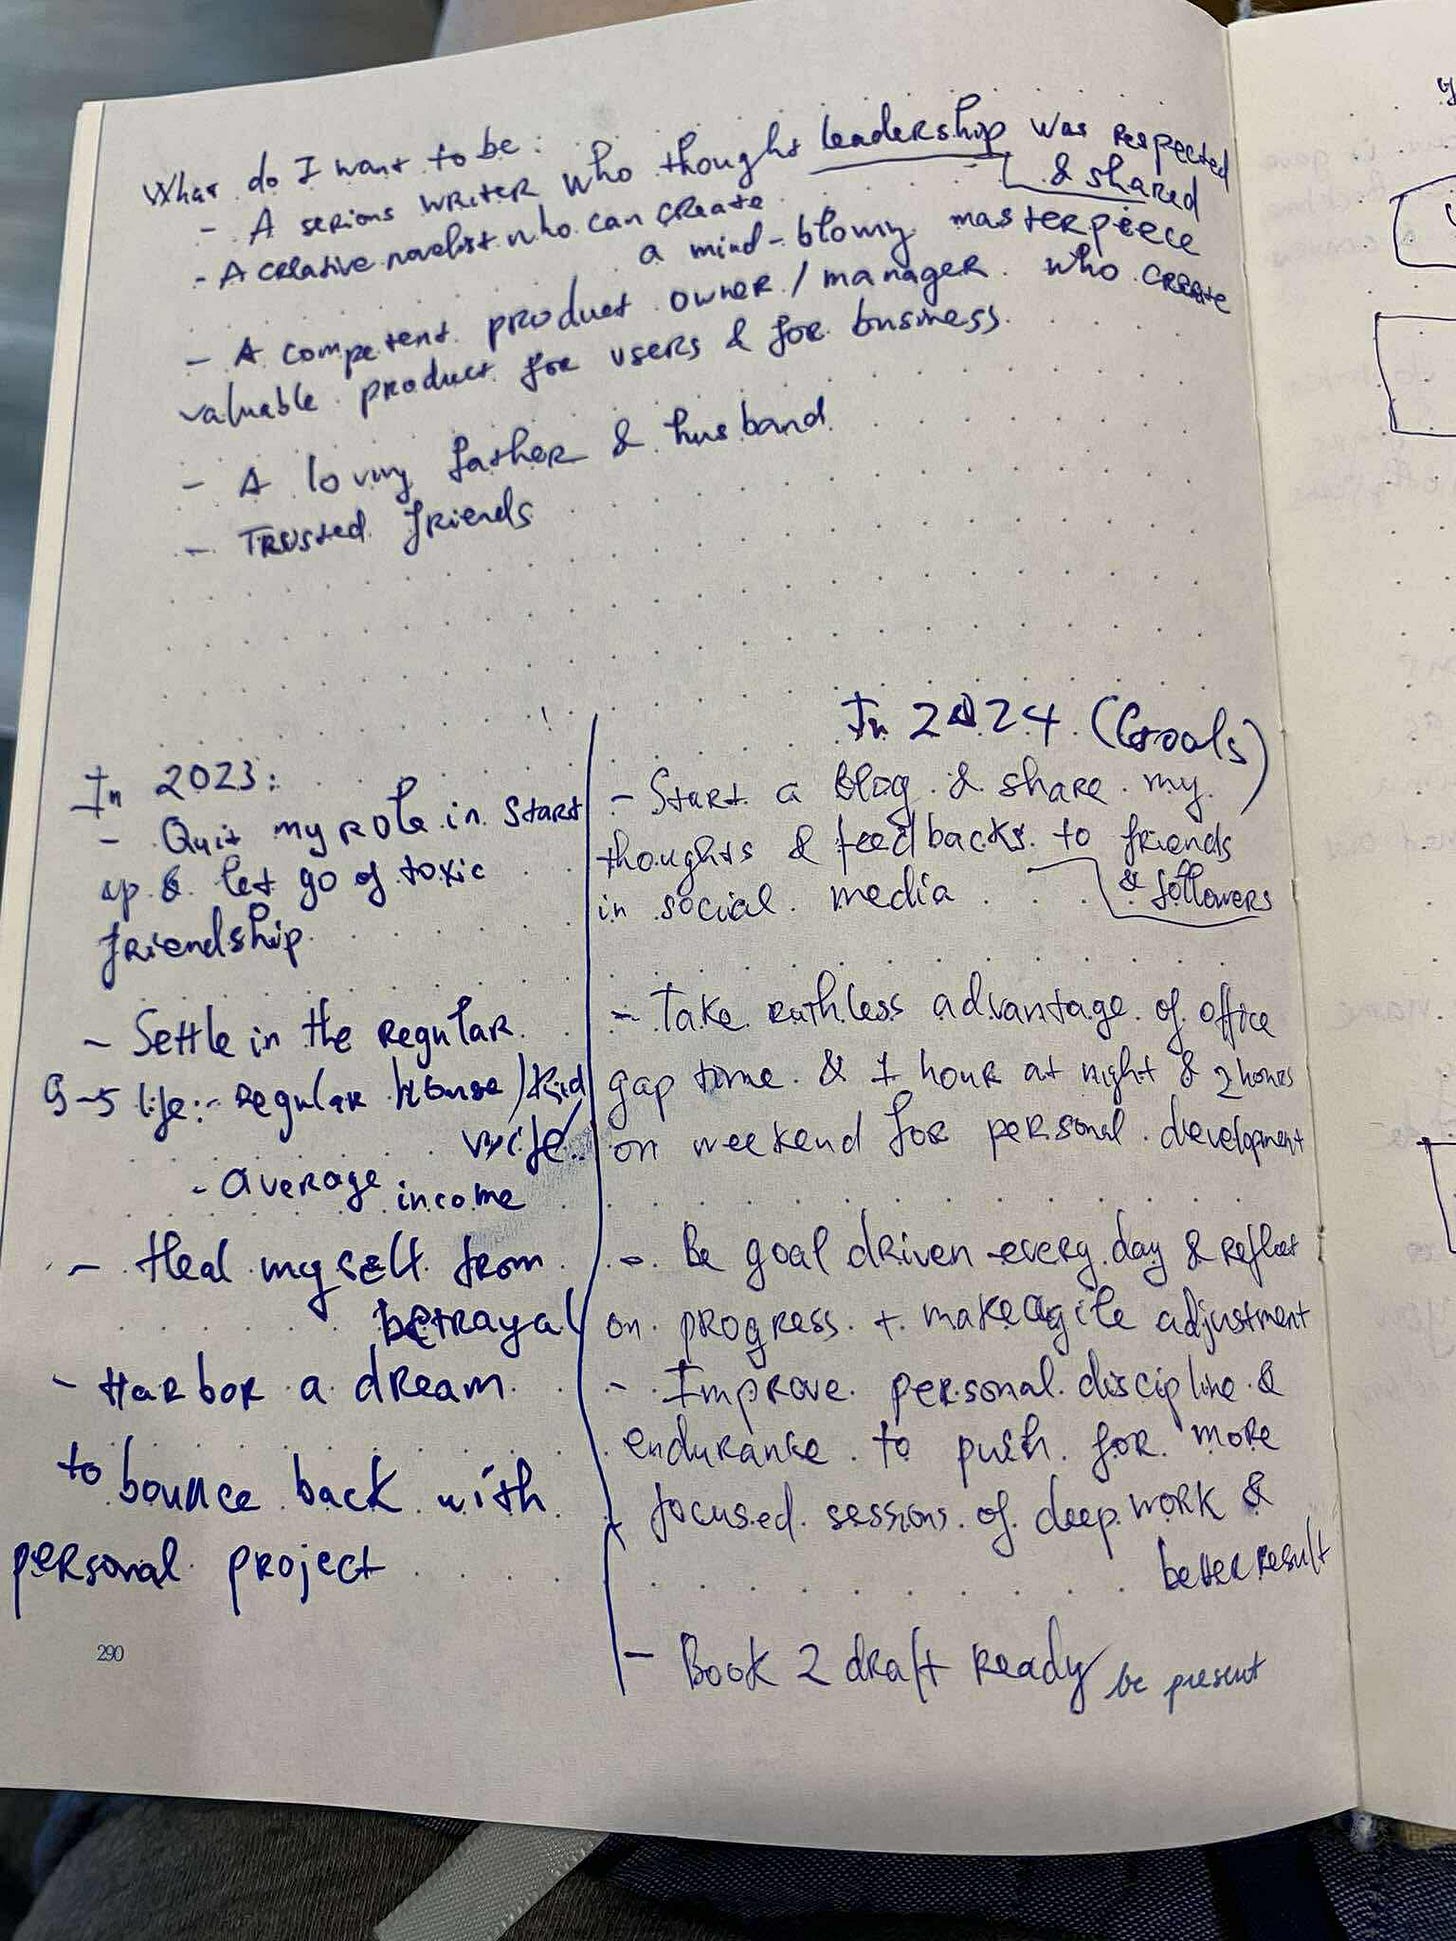 What do I want to be:
- A serious writer who thought leadership was respected
& shared
- A creative novelist who can create
a mind-blowing masterpiece
- A competent product owner / manager who create
valuable product for users & for business
- A loving father & husband
- Trusted friends
In 2023:
- Quit my role in start
up & let go of toxic
friendship
- Settle in the regular
9-5 life: - regular house / kid
wife
- average income
- Heal myself from
betrayal
- Harbor a dream
to bounce back with
personal project
290
In 2024 (Goals)
- Start a blog & share my
thoughts & feedbacks to friends
& followers
in social media
- Take ruthless advantage of office
gap time & 1 hour at night & 2 hours
on weekend for personal development
- Be goal driven every day & reflect
on progress + make agile adjustment
- Improve personal discipline &
endurance to push for more
focused sessions of deep work &
better result
- Book 2 draft ready be present